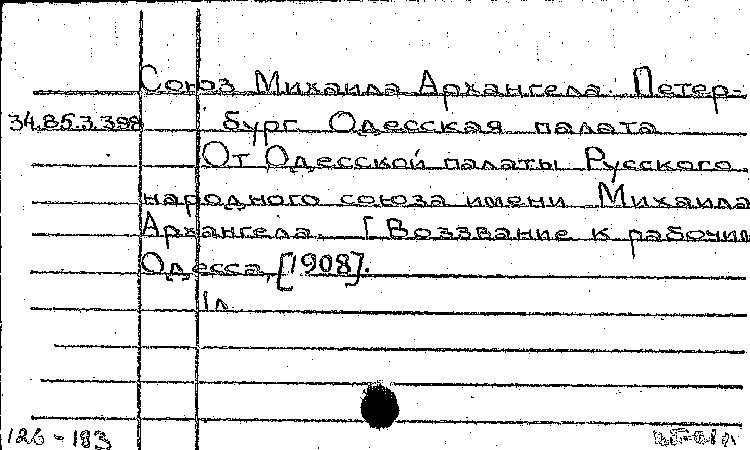 Союз Михаила Архангела. Петер-
34.85.3.398 бург. Одесская палата
От Одесской палаты Русского
народного союза имени Михаила
Архангела. [Воззвание к рабочим
Одесса, [1908].
1 л.
126-183